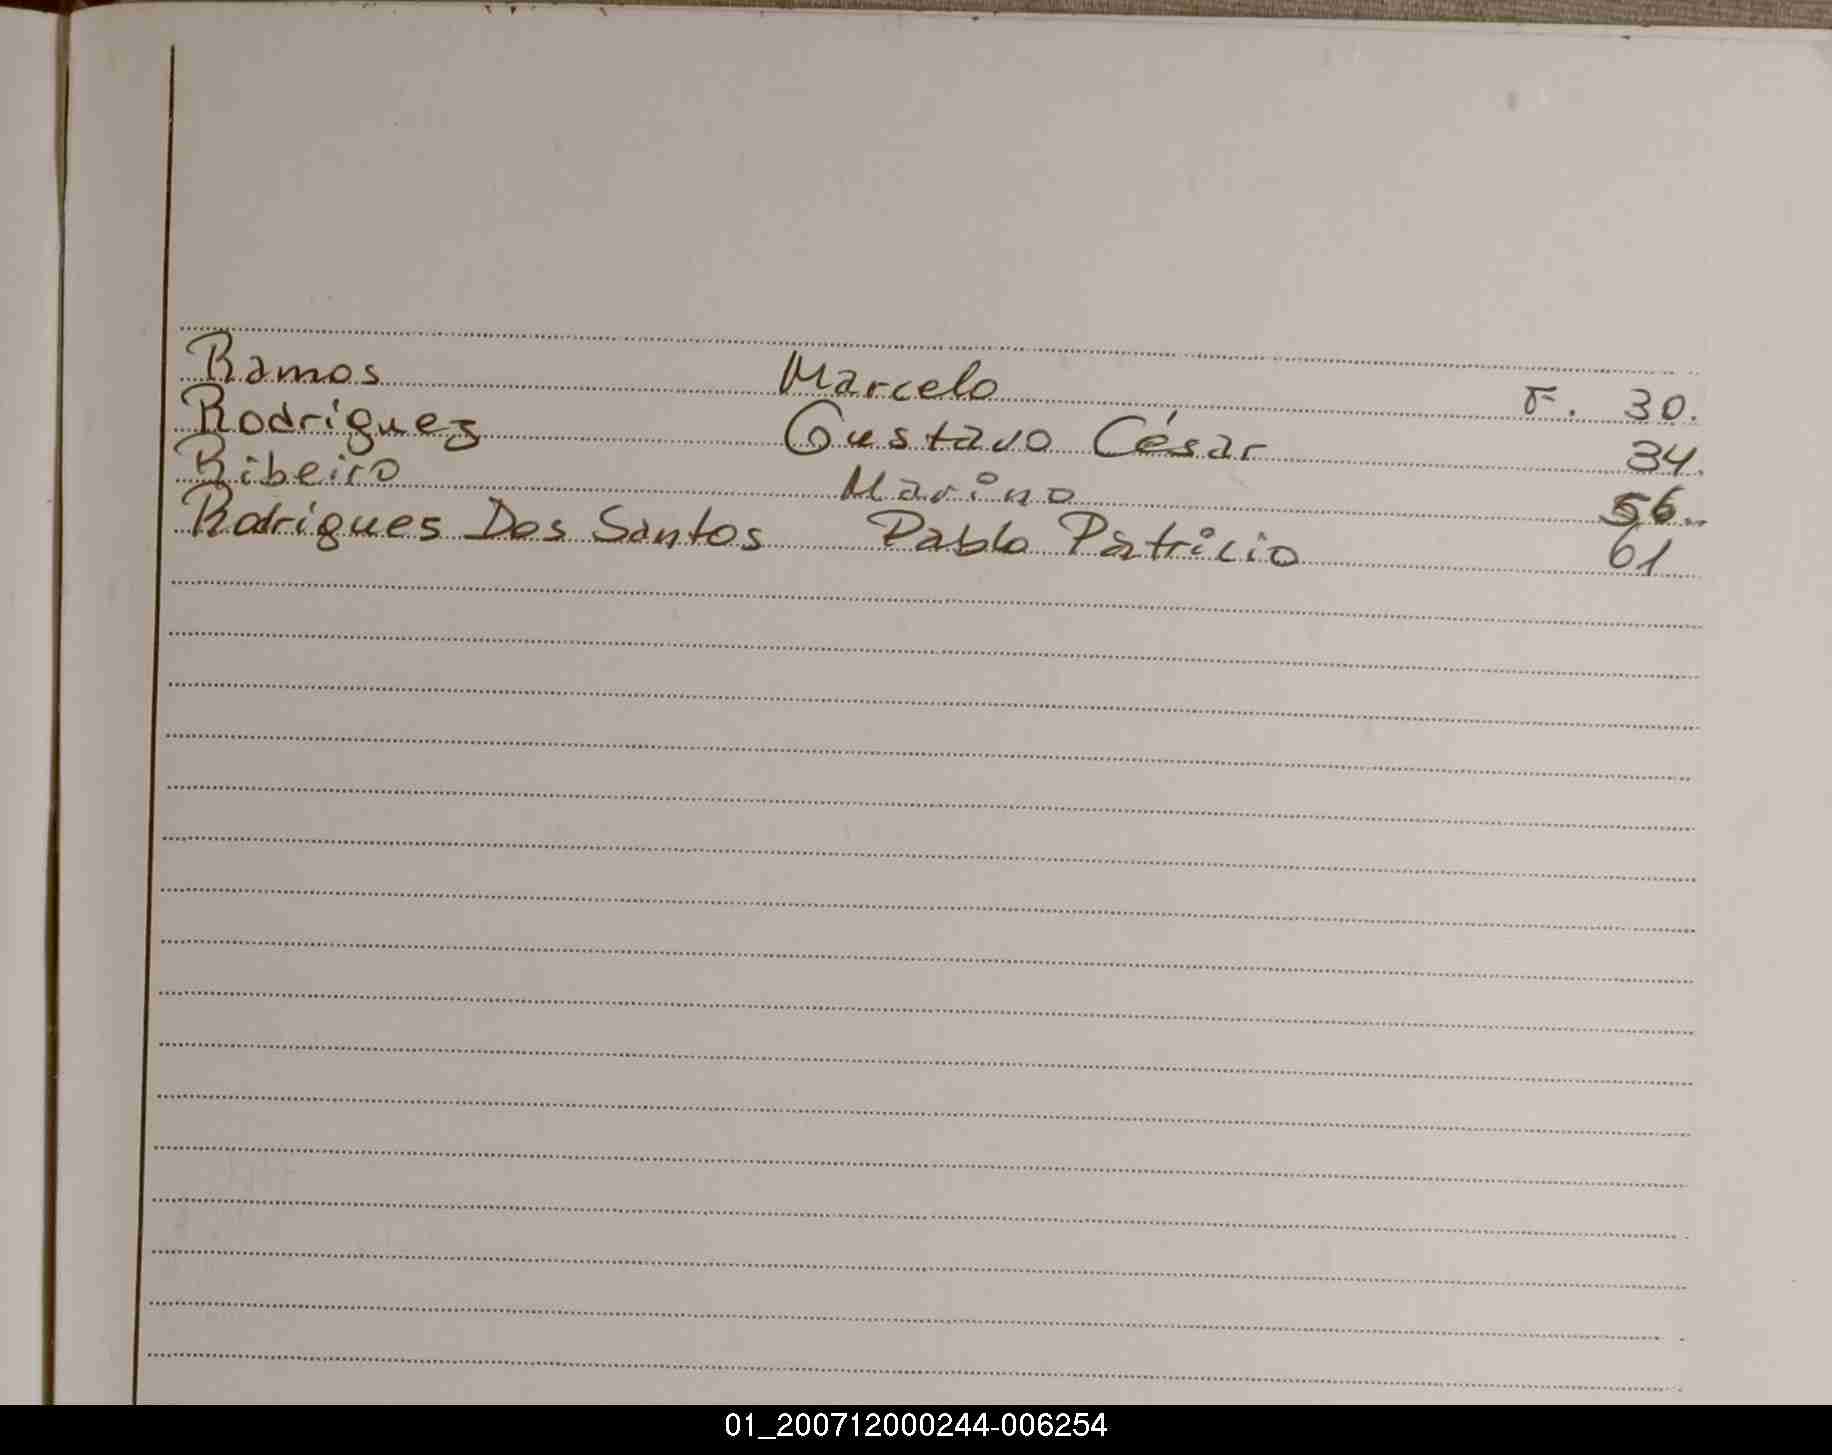 Ramos Marcelo F. 30.
Rodríguez Gustavo César 34.
Ribeiro Marino 56.
Rodrigues Dos Santos Pablo Patricio 61
01_200712000244-006254